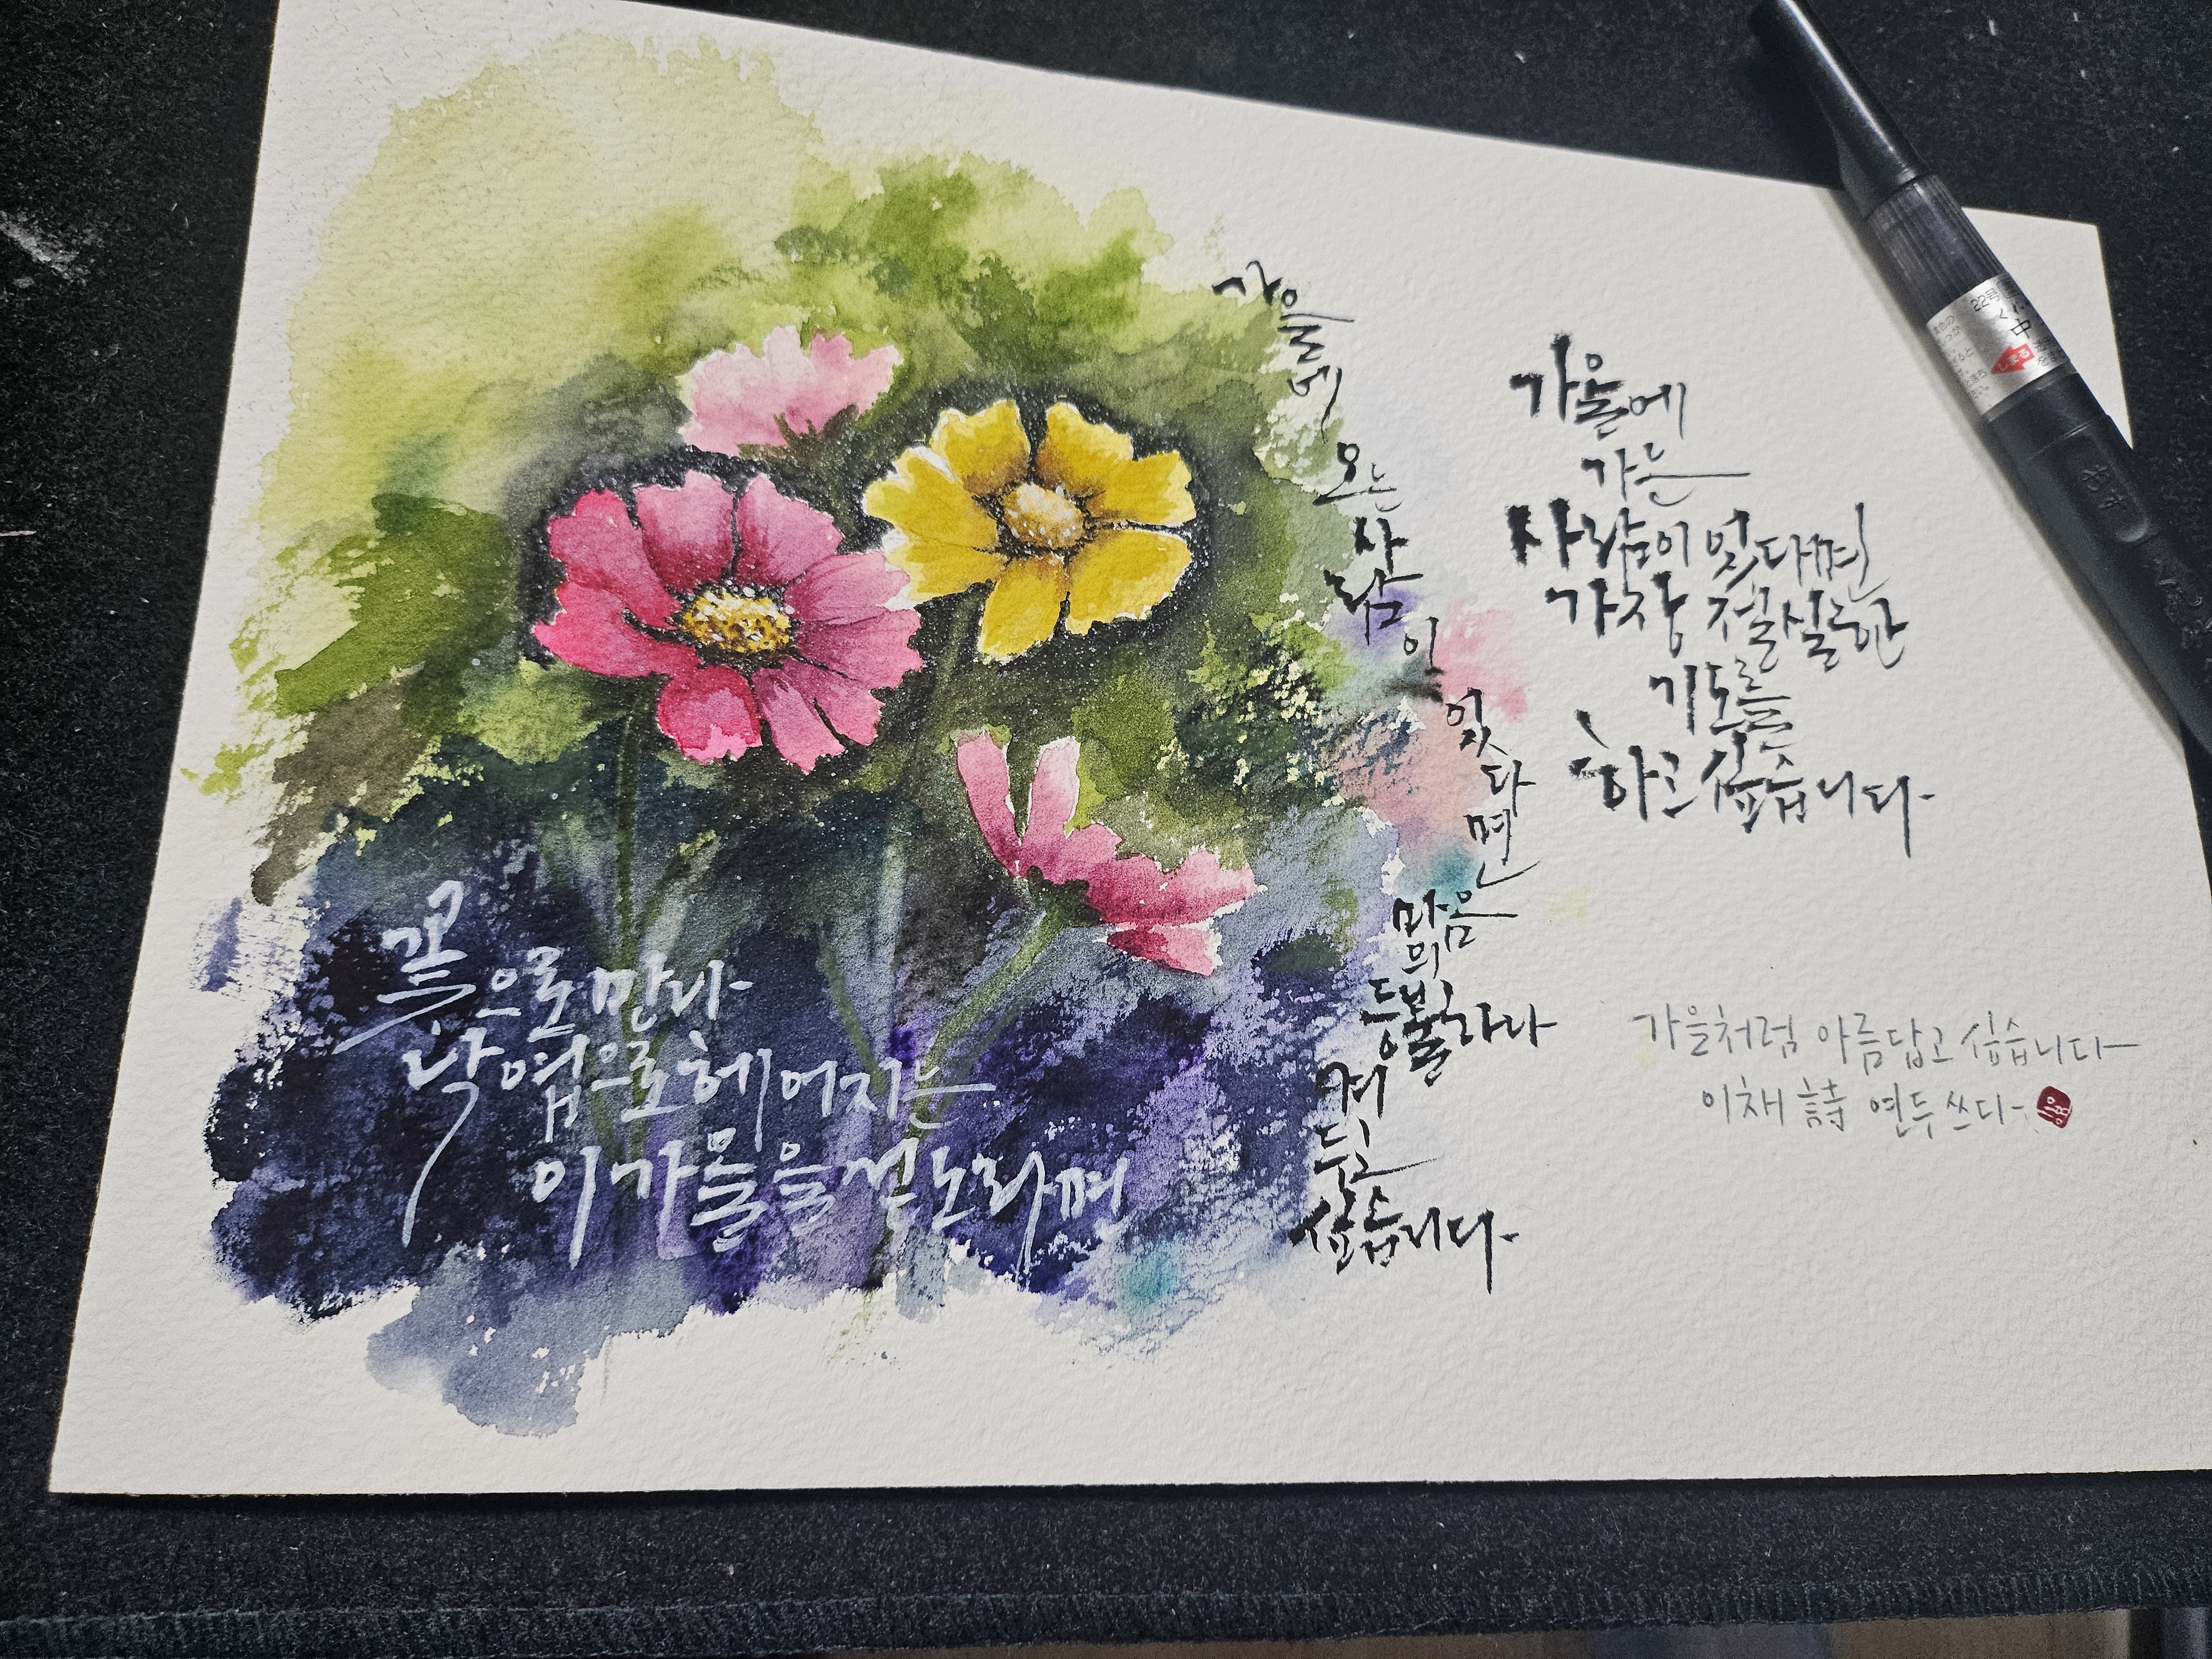 가을에
오는
사
람
이
있다
면
마음
의
등불하나
켜
두고
싶습니다
가을에
가는
사람이 있다면
가장 절실한
기도를
하고 싶습니다
꽃으로 만나
낙엽으로 헤어지는
이 가을을 걷노라면
가을처럼 아름답고 싶습니다
이채 詩 연두 쓰다
22号
中